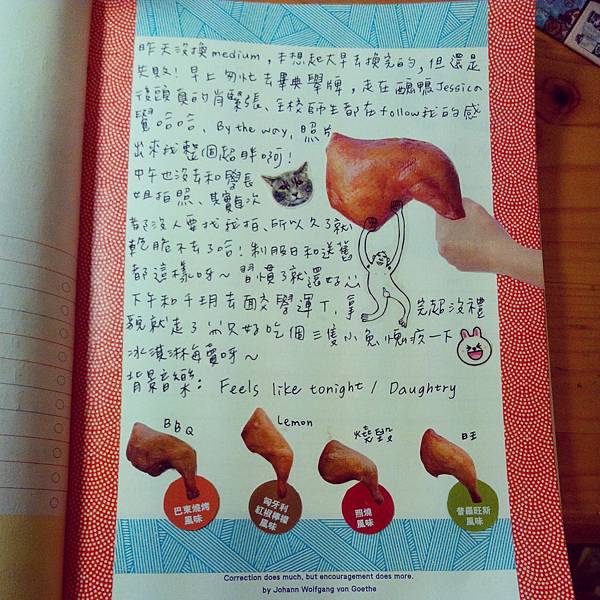 昨天沒換medium，本想起大早去換完的，但還是
失敗！早上匆忙去畢典舉牌，走在醜鴨Jessica
後頭真的肖緊張、全校師生都在follow我的感
覺哈哈、By the way, 照片
出來我整個超胖啊！
中午也沒去和學長
姐拍照、其實每次
都沒人要找我拍、所以久了就
乾脆不去了哈！制服日和送舊
都這樣呀～習慣了就還好
下午和千玥去面交學運T，拿完超沒禮
貌就走了 只好吃個三隻小兔
冰淇淋每賣呀～
背景音樂：Feels like tonight / Daughtry
BBQ
Lemon
旺
巴東燒烤
風味
匈牙利
紅椒檸檬
風味
照燒
風味
普羅旺斯
風味
Correction does much, but encouragement does more.
by Johann Wolfgang von Goethe